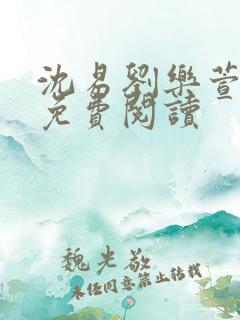 沈易劉樂萱
免費閱讀
魏光敬
未經同意禁止轉載